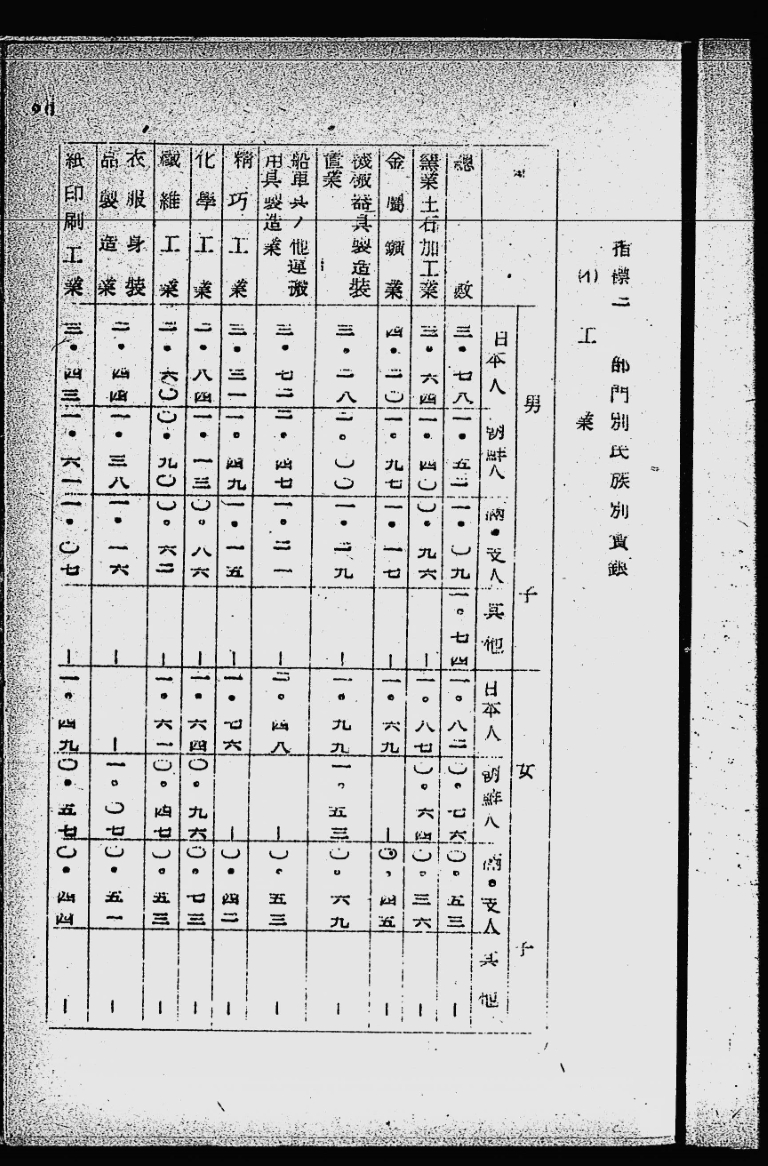 指標二 部門別民族別賃銀
(1) 工業
男子 女子
日本人 朝鮮人 滿・支人 其他 日本人 朝鮮人 滿・支人 其他
總數 三・七八 一・五二 一・〇九 一・七四 一・八二 〇・七六 〇・五三 ー
窯業土石加工業 三・六四 一・四〇 〇・九六 ー 一・八七 〇・六四 〇・三六 ー
金屬鑛業 四・二〇 一・九七 一・一七 ー 一・六九 ー 〇・四五 ー
機械器具製造裝置業 三・二八 二・〇〇 一・二九 ー 一・九九 一・五三 〇・六九 ー
船車其ノ他運搬用具製造業 三・七二 二・四七 一・二一 ー 二・四八 ー 〇・五三 ー
精巧工業 三・三一 一・四九 一・一五 ー 一・七六 ー 〇・四二 ー
化學工業 二・八四 一・一三 〇・八六 ー 一・六四 〇・九六 〇・七三 ー
纖維工業 二・六〇 〇・九〇 〇・六二 ー 一・六一 〇・四七 〇・五三 ー
衣服身裝品製造業 二・四四 一・三八 一・一六 ー ー 一・〇七 〇・五一 ー
紙印刷工業 三・四三 一・六一 一・〇七 ー 一・四九 〇・五七 〇・四四 ー